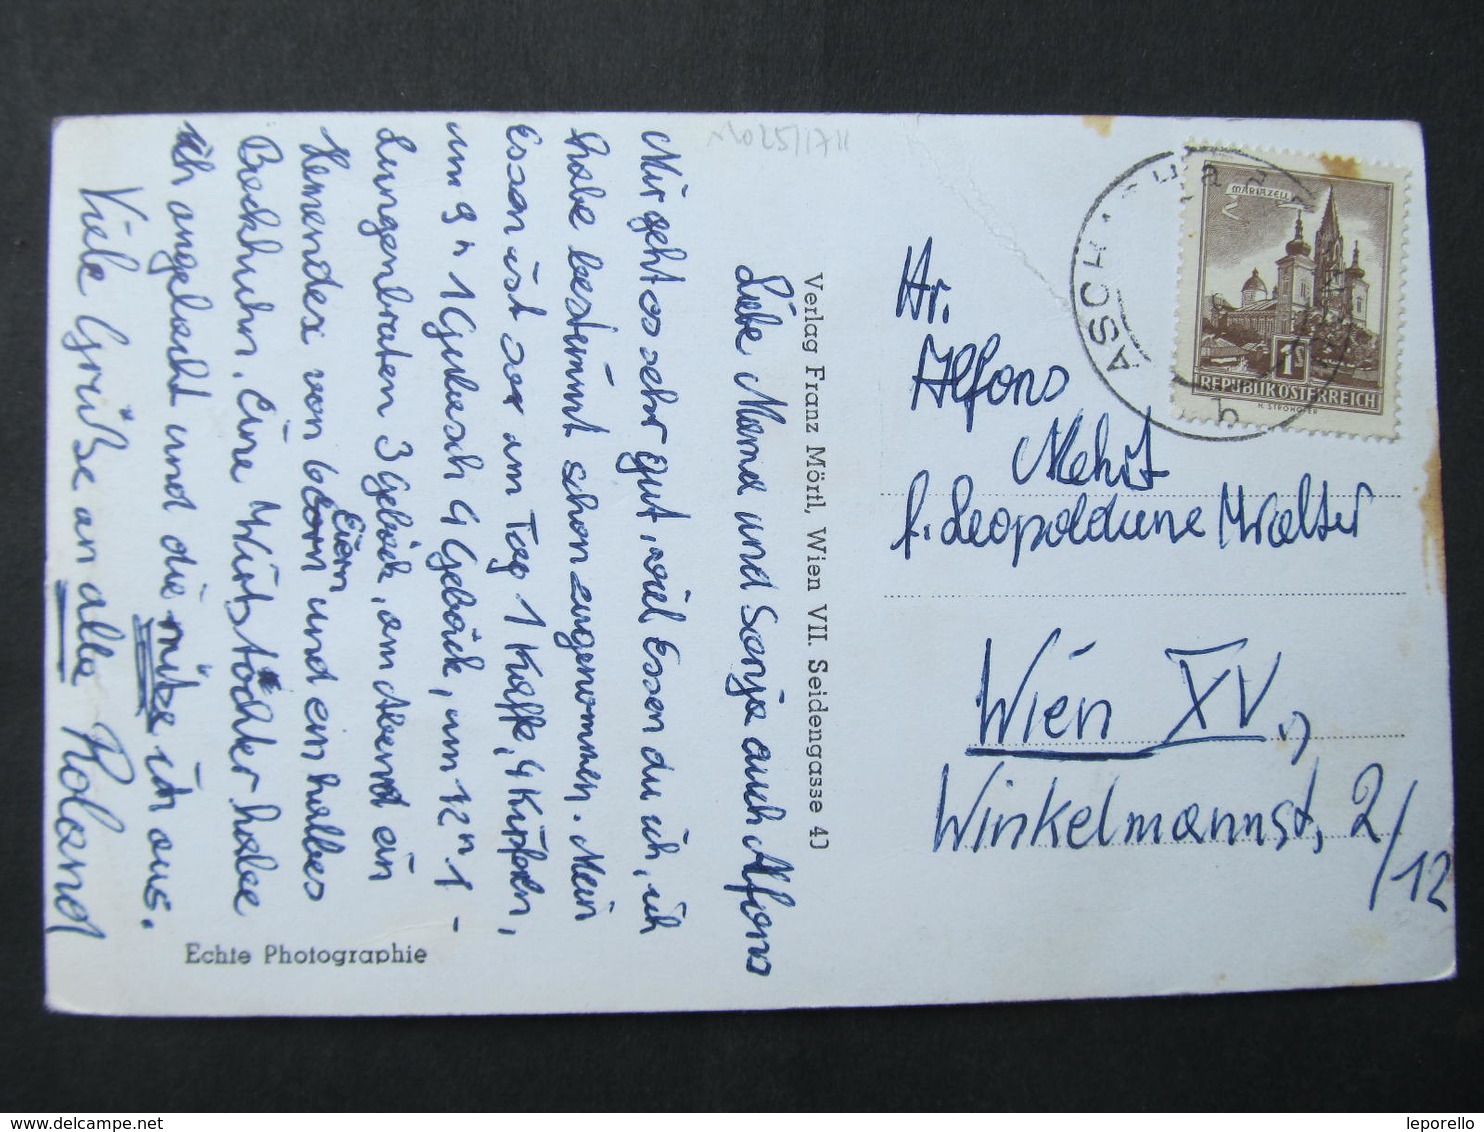 Liebe Mama und Sonja auch Alfons
Mir geht es sehr gut, viel Essen du ich, ich
habe bestimmt schon zugenommen. Mein
Essen ist am Tag 1 Kaffe, 4 Kipfeln,
um 9ʰ 1 Gulasch 4 Gebäck, um 12ʰ 1
Lungenbraten 3 Gebäck, am Abend ein
Hemendex von 6 Eiern und ein halbes
Backhuhn. Eine Wirtstochter habe
ich angelacht und die nütze ich aus.
Viele Grüße an alle Roland
Echte Photographie
Verlag Franz Mörtl, Wien VII. Seidengasse 40
ASCH
MARIAZELL
1S
REPUBLIK ÖSTERREICH
H. STROHOFER
Hr.
Alfons
f. Leopoldine Walter
Wien XV,
Winkelmannst, 2/12
leporello